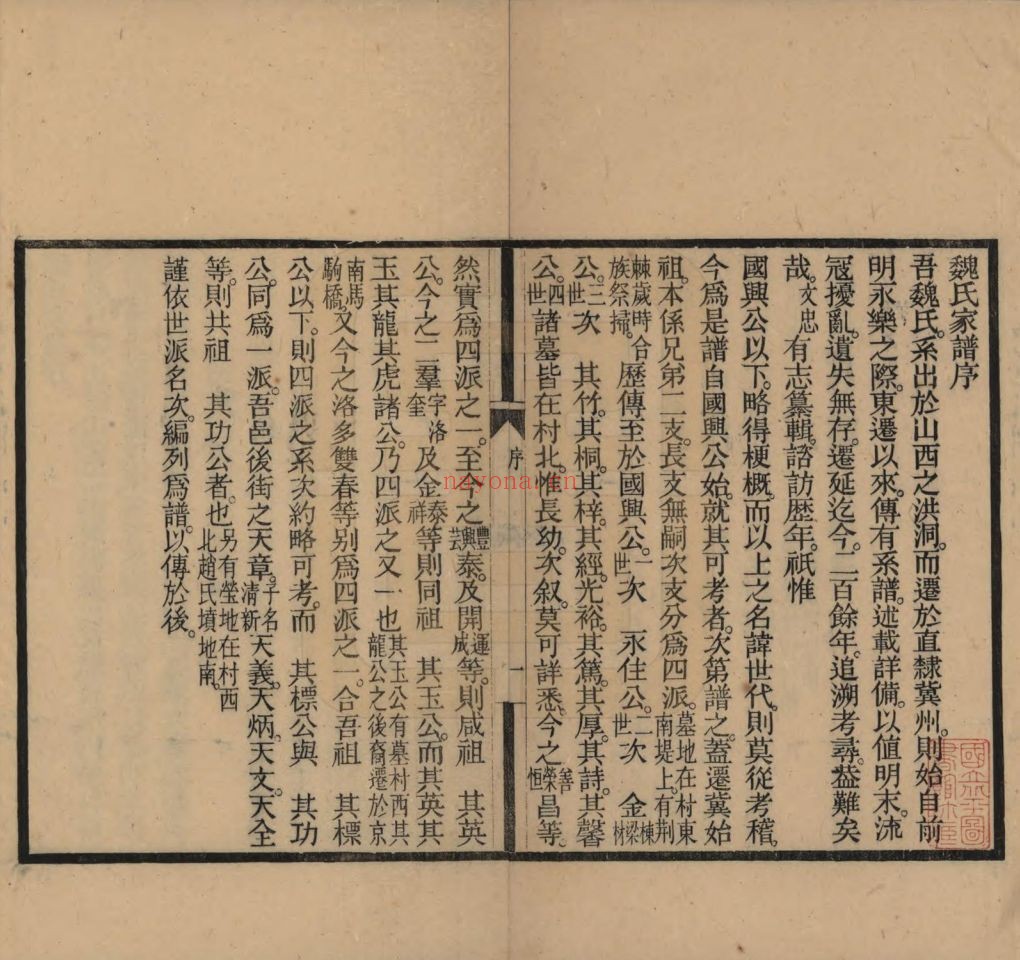 魏氏家譜序
吾魏氏。系出於山西之洪洞。而遷於直隸冀州。則始自前
明永樂之際。東遷以來。傳有系譜。述載詳備。以值明末。流
寇擾亂。遺失無存。遷延迄今。二百餘年。追溯考尋。葢難矣
哉。文忠有志纂輯。諮訪歷年。祇惟
國興公以下。略得梗概。而以上之名諱世代。則莫從考稽。
今爲是譜自國興公始。就其可考者。次第譜之。蓋遷冀始
祖。本係兄弟二支。長支無嗣次支分爲四派。墓地在村東南堤上。有荆
棘歲時合族祭掃。 歷傳至於國興公。一世次 永住公。二世次 金棟梁材
公。三世次 其竹。其桐。其梓。其經。光裕。其篤。其厚。其詩。其馨
公。四世諸墓皆在村北。惟長幼。次叙。莫可詳悉。今之善榮恒昌等。
然實爲四派之一。至今之豐興芸泰。及開運成等。則咸祖 其英
公。今之二羣字洛奎及金泰祥等則同祖 其玉公。而其英其
玉其龍其虎諸公。乃四派之又一也其玉公有墓村西其龍公之後裔遷於京
南馬駒橋。又今之洛多雙春等别爲四派之一。合吾祖 其標
公以下。則四派之系次約略可考。而 其標公與 其功
公。同爲一派。吾邑後街之天章。子名清新天義。天炳。天文。天全
等。則共祖 其功公者。也另有塋地在村西北趙氏墳地南。
謹依世派名次。編列爲譜。以傳於後。
序
一
nayona.cn